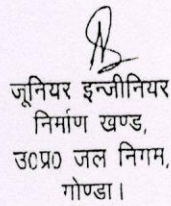 जूनियर इन्जीनियर
निर्माण खण्ड,
उ०प्र० जल निगम,
गोण्डा।